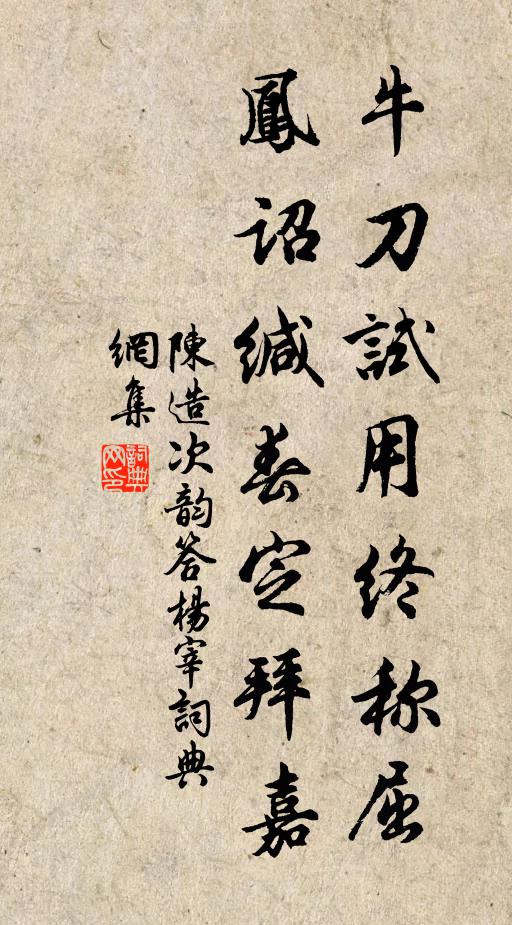 牛刀試用終称屈
鳳詔緘春定拜嘉
陳造次韵答楊宰詞典
網集
詞典網印